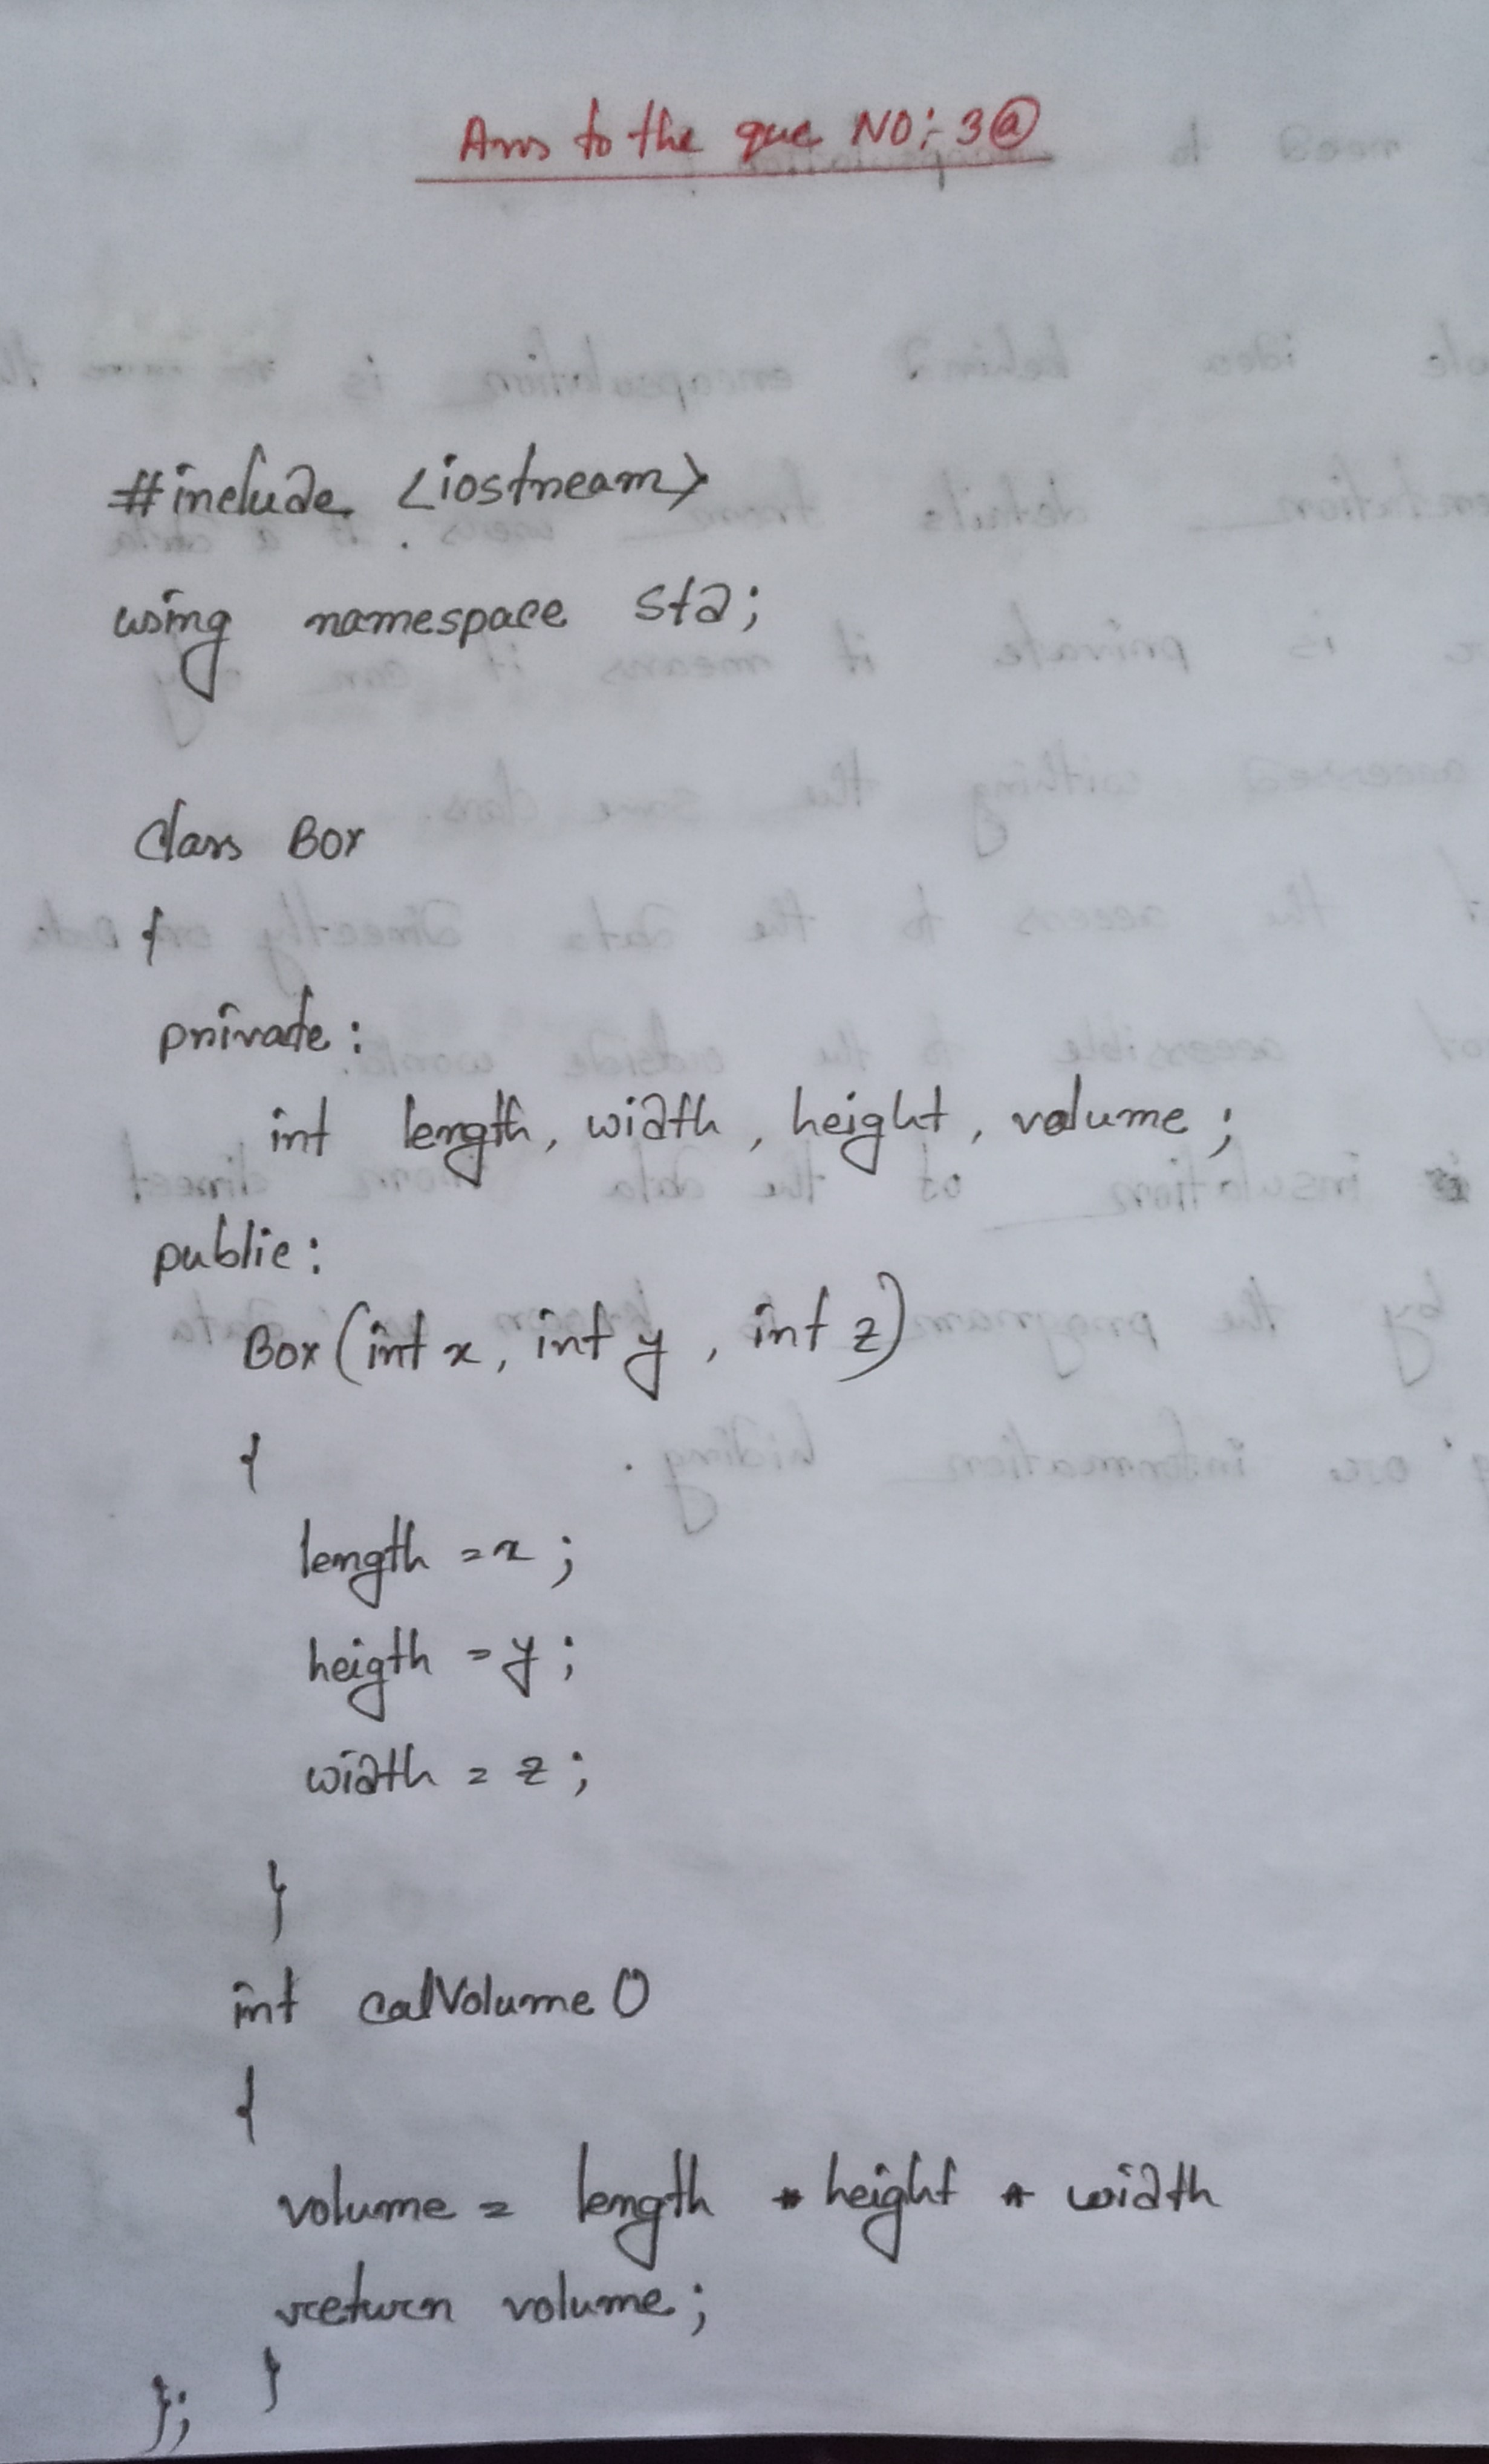 Ans to the que NO:- 3@
#include <iostream>
using namespace std;
class Box
{
private:
int length, width, height, volume;
public:
Box(int x, int y, int z)
{
length = x;
heigth = y;
width = z;
}
int calVolume()
{
volume = length * height * width
return volume;
}
};